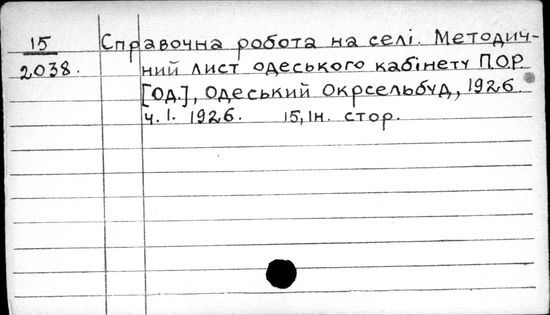 15 Справочна робота на селі. Методич-
2038. ний лист одеського кабінету П.О.Р
[Од.], Одеський Окрсельбуд, 1926.
ч. І. 1926. 15, Ін. стор.